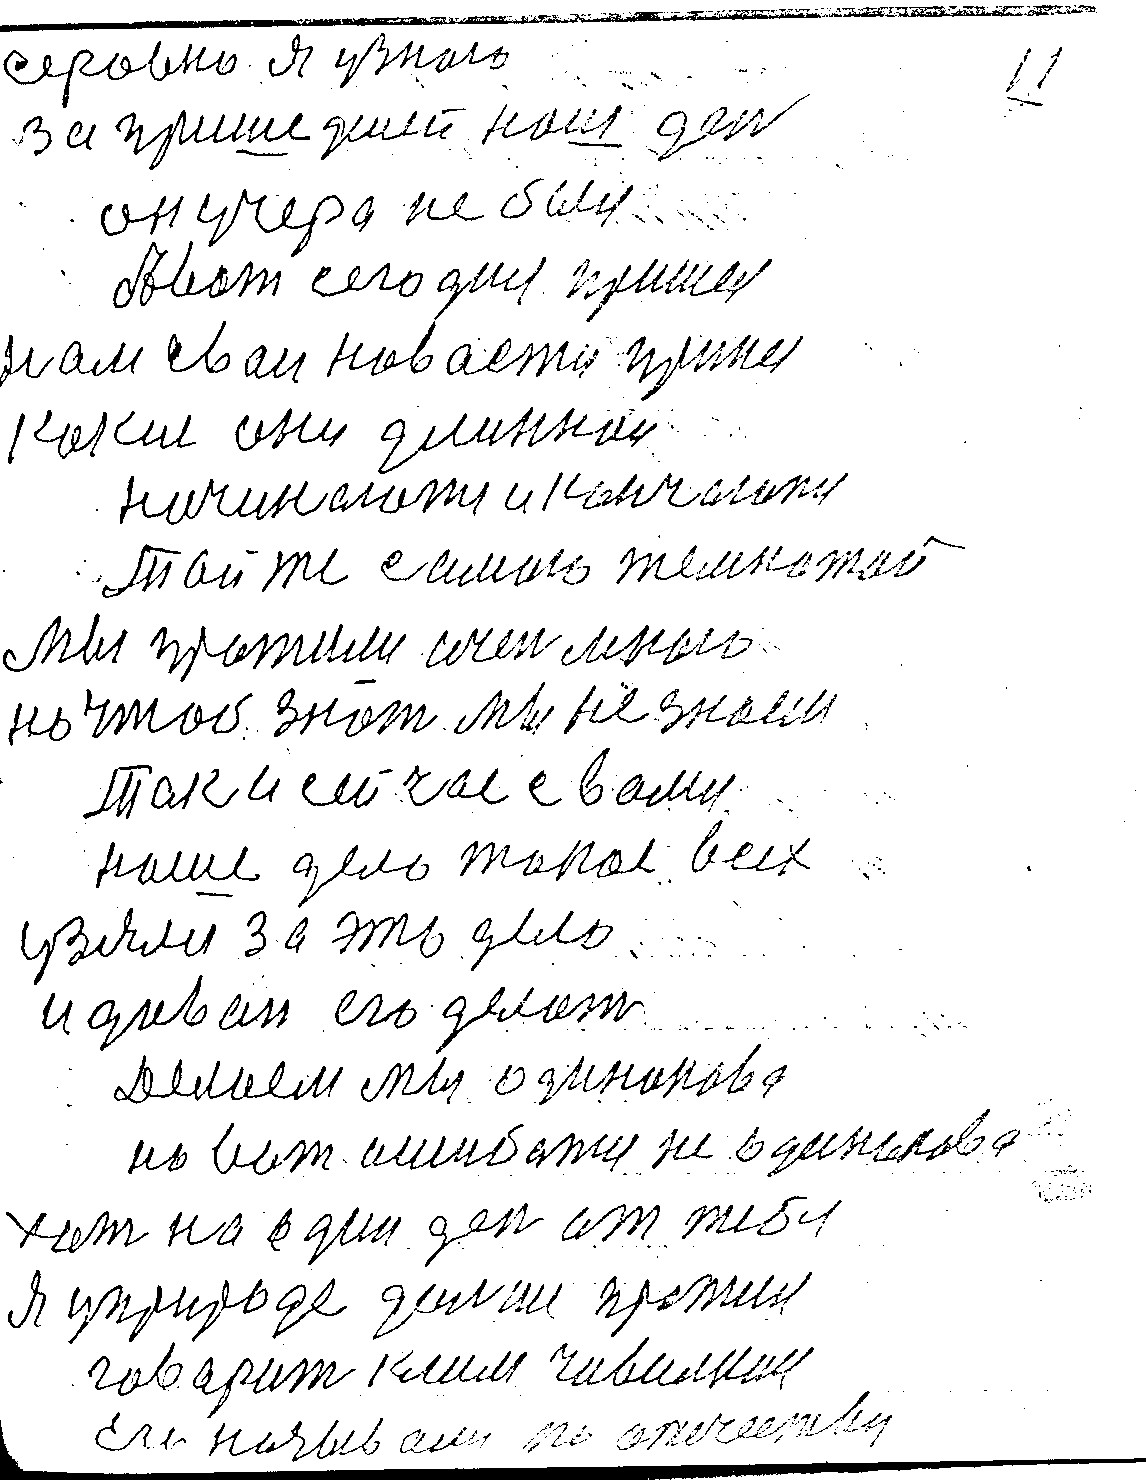 11
серовно я узнаю
за пришедшей наш ден
он учера не был
Авот сегодня пришел
нам сваи новасти принеи
какие они длиннаи
начинаюти и канчаюти
Тайже самаю темнатай
Мы прожили очен много
но чтоб знат мы не знаем
Так и сейчас свами
наше дело такое всех
узяли за это дело
и дован его делат
Делаем мы одинакова
но вот ошиботи не одинакова
хот на один ден от тебя
я уприроде долше прожил
говарит Клим
Его называли по отчеству